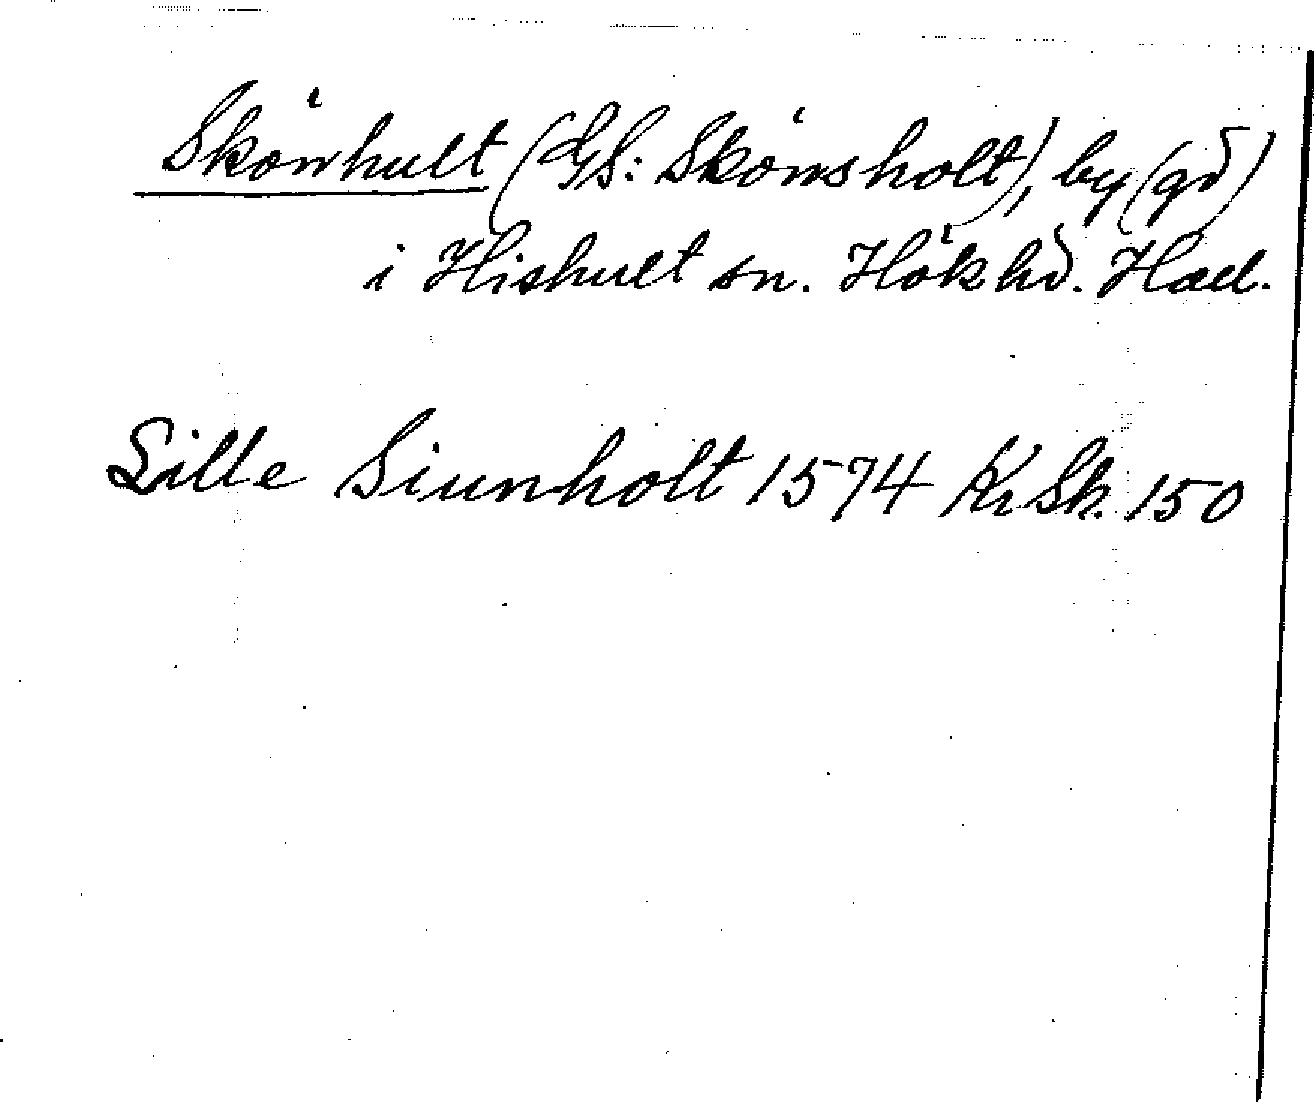 Skönhult (GS: Skönsholt), by (gd)
i Hishult sn. Höks hd. Hall.
Lille Siunholt 1574 KrSk. 150